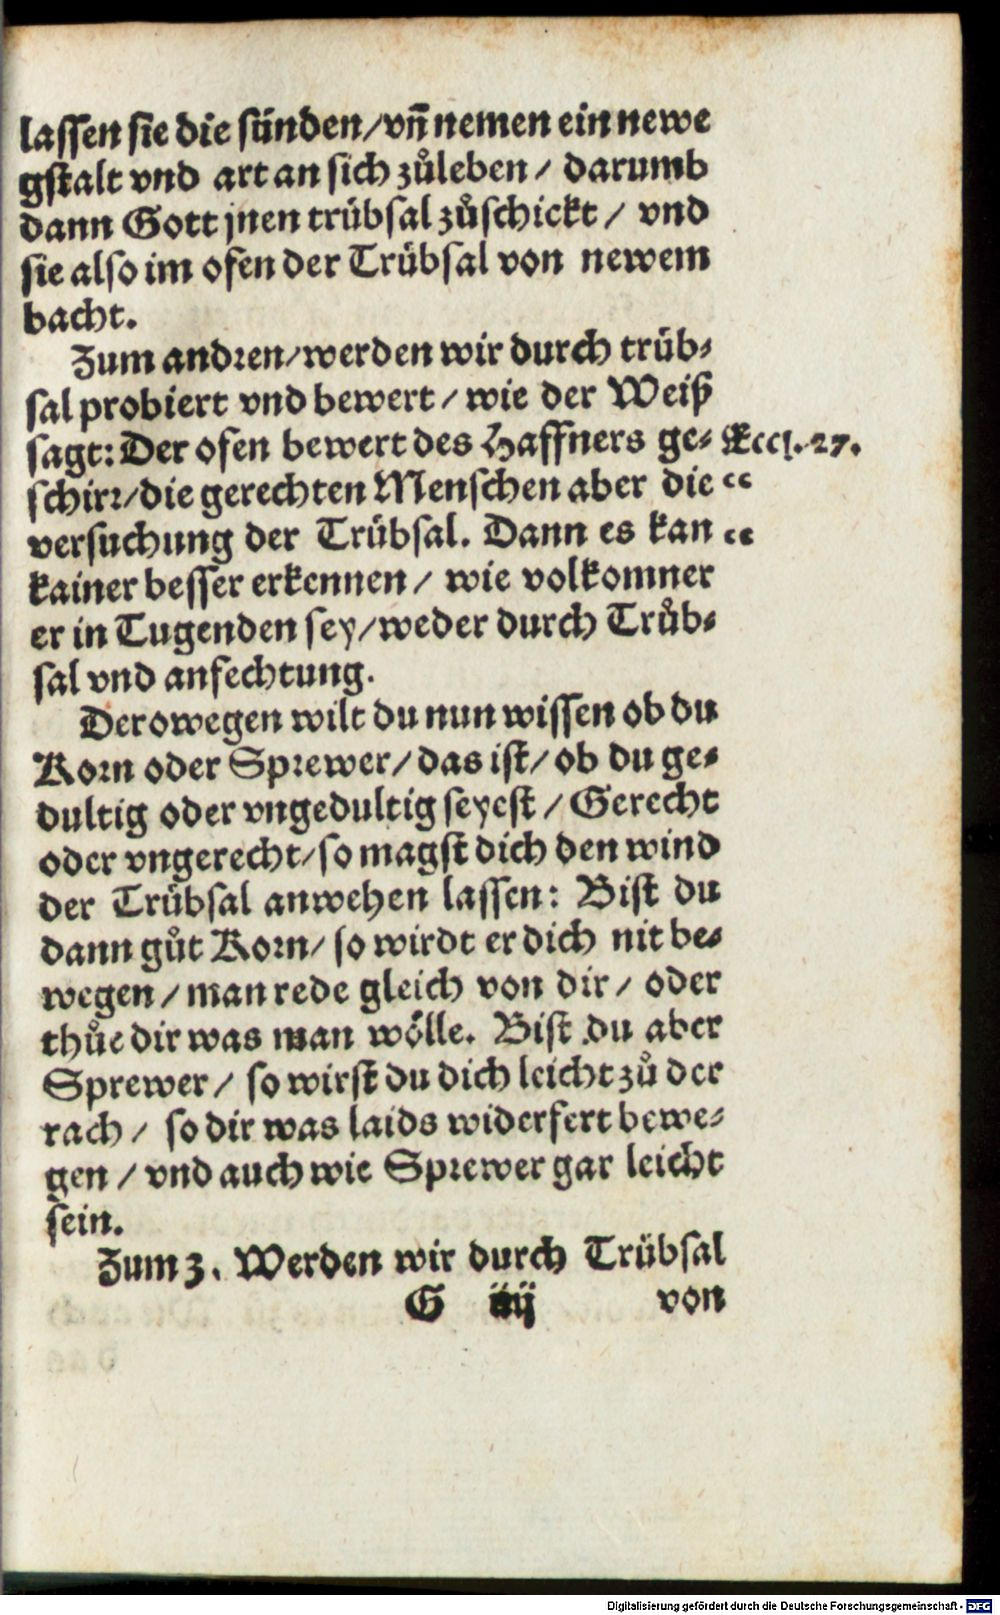 lassen sie die sünden/ vn̄ nemen ein newe
gstalt vnd art an sich zůleben/ darumb
dann Gott jnen trübsal zůschickt/ vnd
sie also im ofen der Trübsal von newem
bacht.
Zum andren/ werden wir durch trüb-
sal probiert vnd bewert/ wie der Weiß
sagt: Der ofen bewert des Haffners ge- Eccl. 27.
schirr/ die gerechten Menschen aber die “
versuchung der Trübsal. Dann es kan “
kainer besser erkennen/ wie volkomner
er in Tugenden sey/ weder durch Trůb-
sal vnd anfechtung.
Derowegen wilt du nun wissen ob du
Korn oder Sprewer/ das ist/ ob du ge-
dultig oder vngedultig seyest/ Gerecht
oder vngerecht/ so magst dich den wind
der Trübsal anwehen lassen: Bist du
dann gůt Korn/ so wirdt er dich nit be-
wegen/ man rede gleich von dir/ oder
thůe dir was man wölle. Bist du aber
Sprewer/ so wirst du dich leicht zů der
rach/ so dir was laids widerfert bewe-
gen/ vnd auch wie Sprewer gar leicht
sein.
Zum 3. Werden wir durch Trübsal
G iiij von
Digitalisierung gefördert durch die Deutsche Forschungsgemeinschaft - DFG